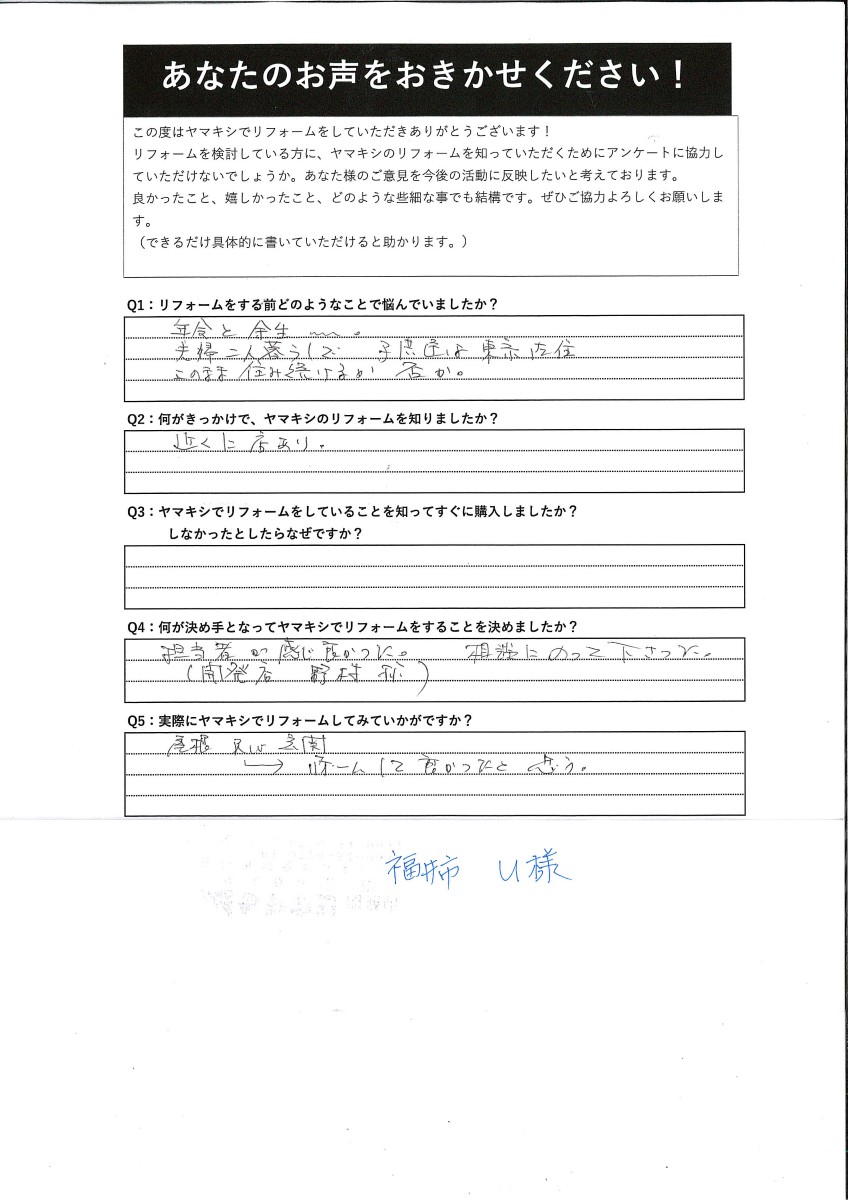 あなたのお声をおきかせください！
この度はヤマキシでリフォームをしていただきありがとうございます！
リフォームを検討している方に、ヤマキシのリフォームを知っていただくためにアンケートに協力し
ていただけないでしょうか。あなた様のご意見を今後の活動に反映したいと考えております。
良かったこと、嬉しかったこと、どのような些細な事でも結構です。ぜひご協力よろしくお願いしま
す。
（できるだけ具体的に書いていただけると助かります。）
Q1：リフォームをする前どのようなことで悩んでいましたか？
年令と 余生 〰。
夫婦二人暮らしで 子供達は 東京在住
このまま 住み続けるか 否か。
Q2：何がきっかけで、ヤマキシのリフォームを知りましたか？
近くに 店あり。
Q3：ヤマキシでリフォームをしていることを知ってすぐに購入しましたか？
しなかったとしたらなぜですか？
Q4：何が決め手となってヤマキシでリフォームをすることを決めましたか？
担当者が 感じ良かった。 相談にのって下さった。
（開発店 野村 様）
Q5：実際にヤマキシでリフォームしてみていかがですか？
屋根 及び 玄関
して 良かったと 思う。
福井市 U様